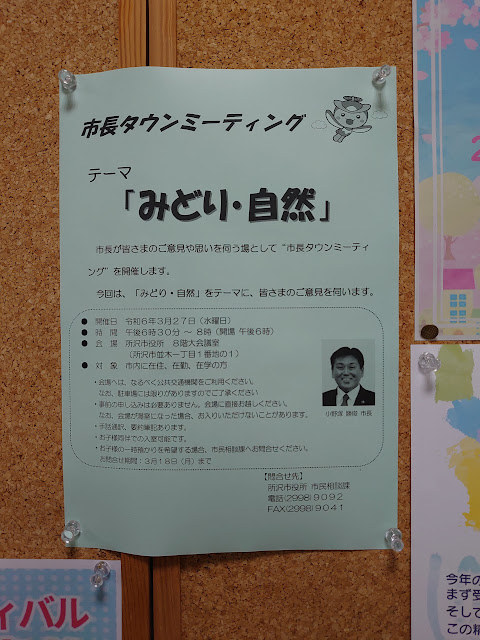 市長タウンミーティング
テーマ
「みどり・自然」
市長が皆さまのご意見や思いを伺う場として“市長タウンミーティ
ング”を開催します。
今回は、「みどり・自然」をテーマに、皆さまのご意見を伺います。
● 開催日 令和6年3月27日（水曜日）
● 時 間 午後6時30分～8時（開場 午後6時）
● 会 場 所沢市役所 8階大会議室
（所沢市並木一丁目1番地の1）
● 対 象 市内に在住、在勤、在学の方
・会場へは、なるべく公共交通機関をご利用ください。
なお、駐車場には限りがありますのでご了承ください
・事前の申し込みは必要ありません。会場に直接お越しください。
なお、会場が満席になった場合、お入りいただけないことがあります。
・手話通訳、要約筆記あります。
・お子様同伴での入室可能です。
・お子様の一時預かりを希望する場合、市民相談課へお問合せください。
お問合せ期間：3月18日（月）まで
小野塚 勝俊 市長
【問合せ先】
所沢市役所 市民相談課
電話(2998)9092
FAX(2998)9041
ィバル
今年の
まず受
そして
この精